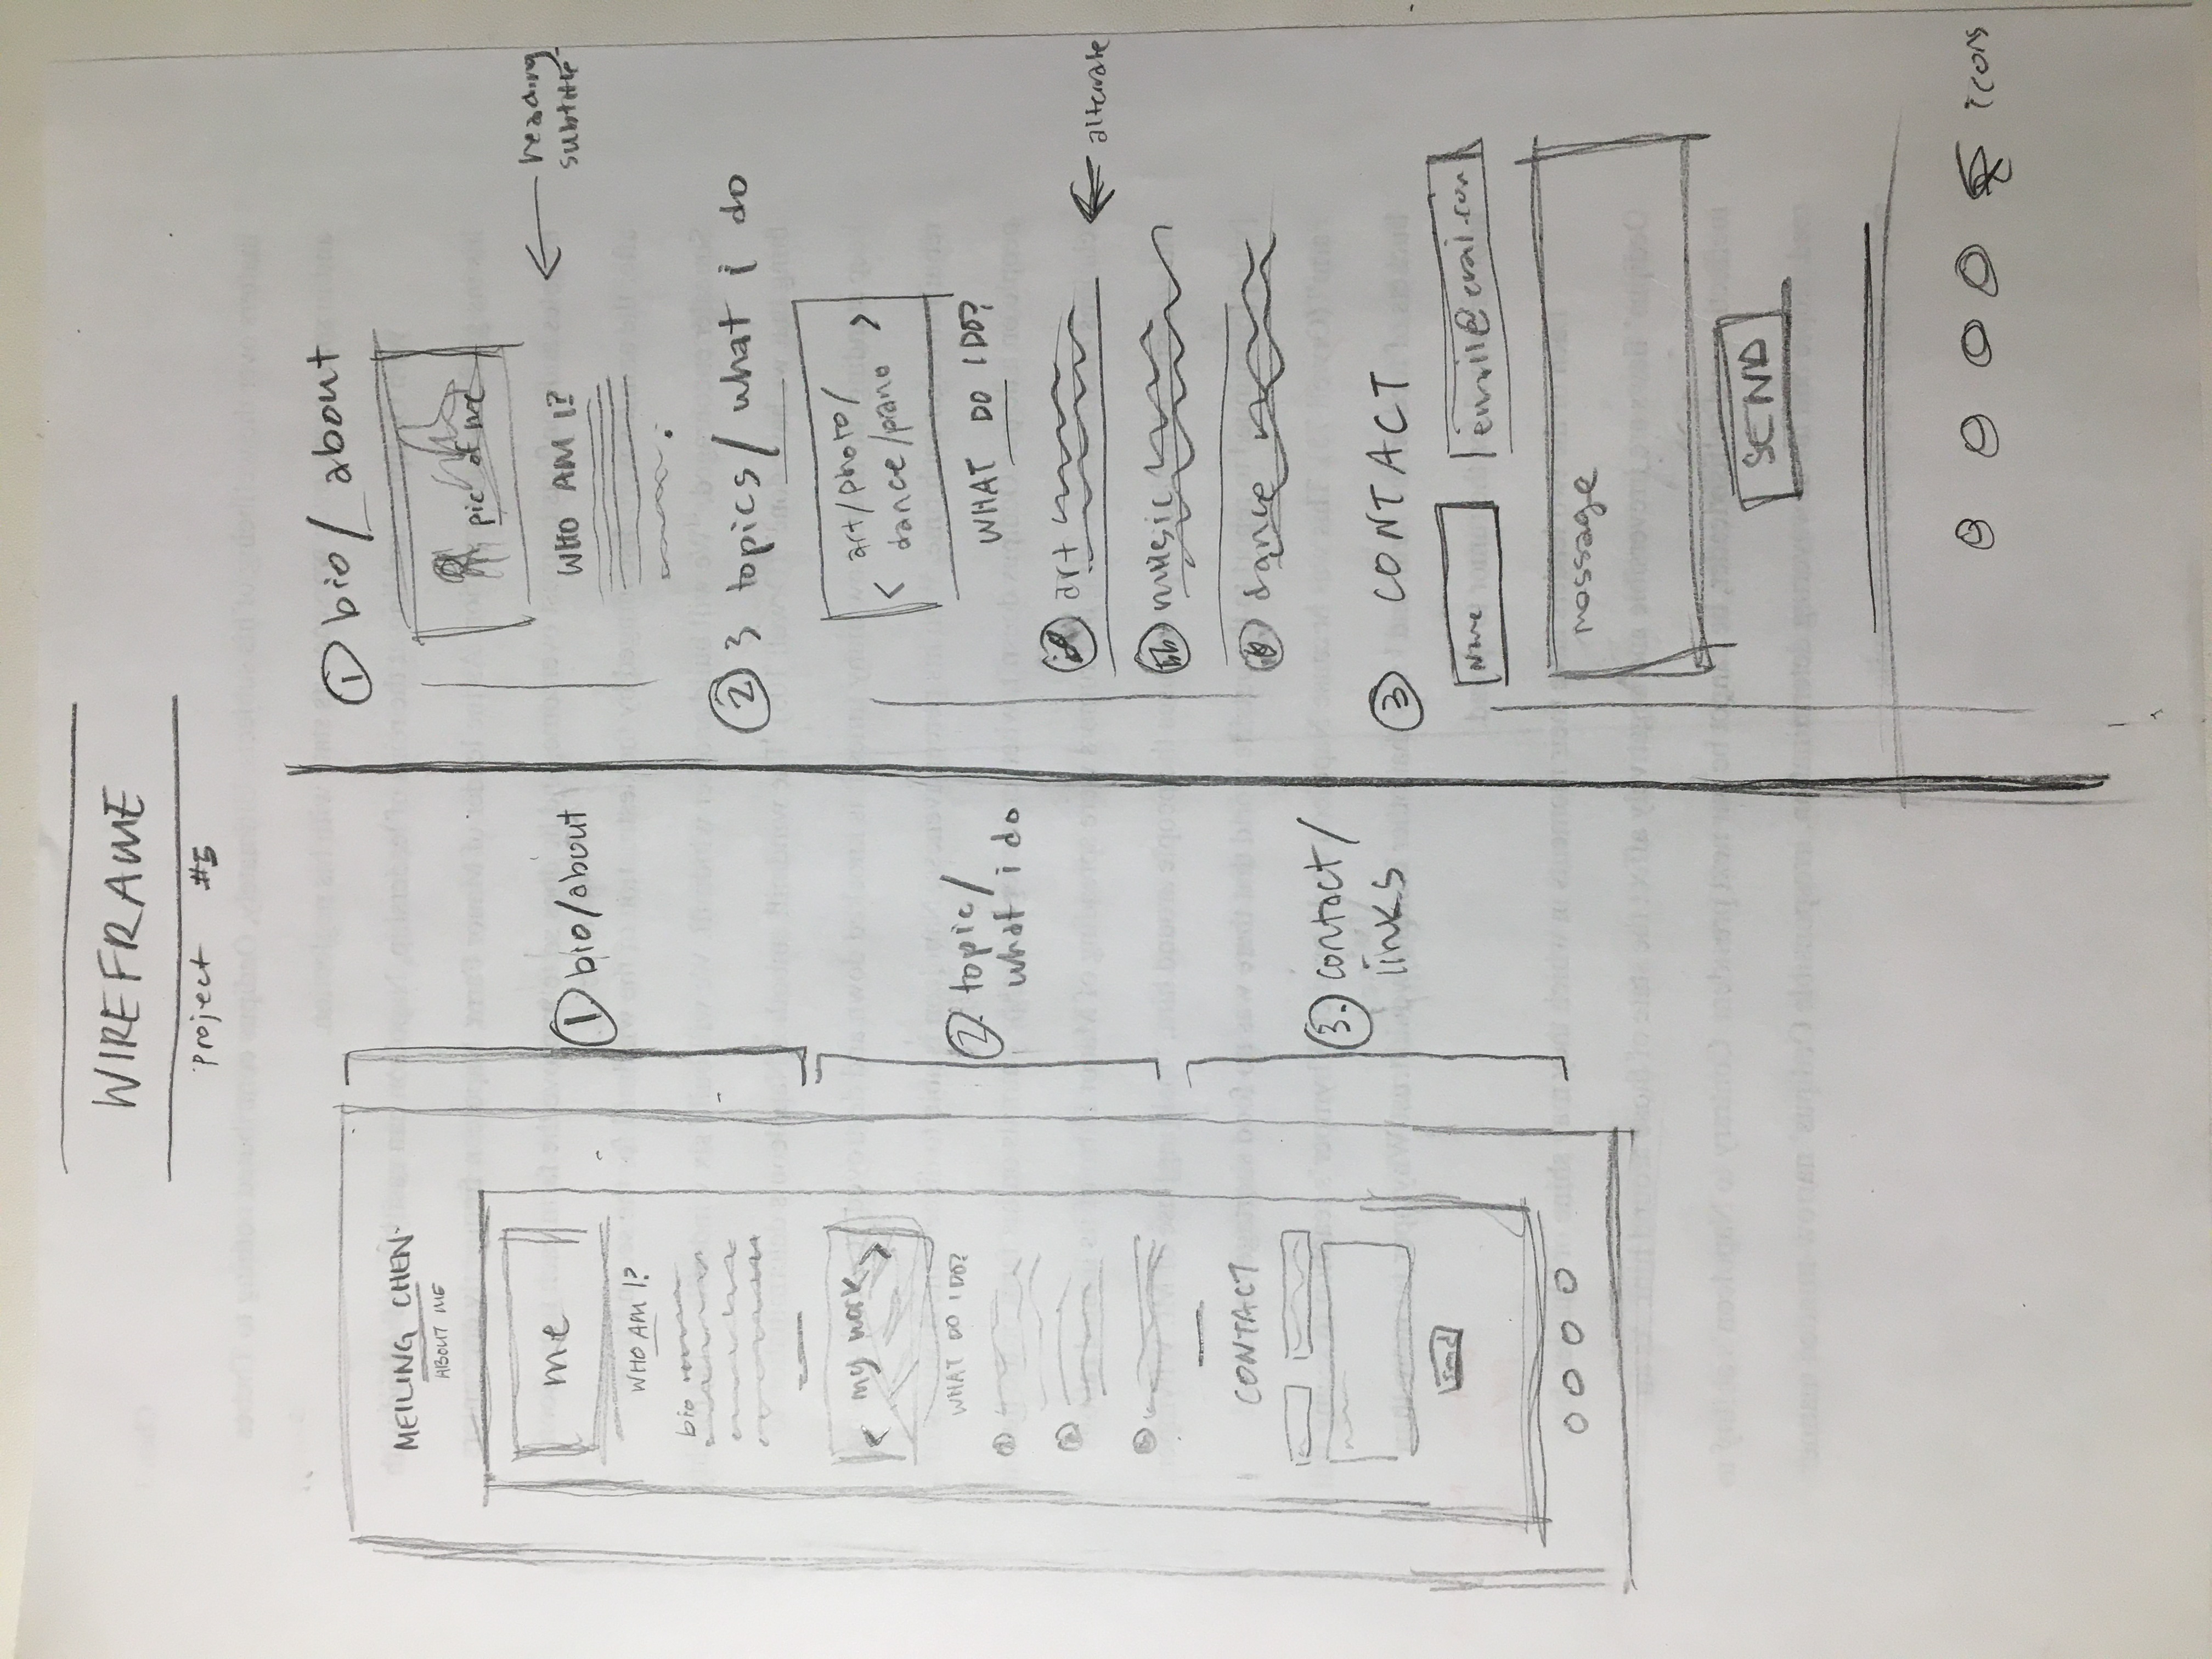 WIREFRAME
project #5
MEILING CHEN
ABOUT ME
me
WHO AM I?
bio
< my work >
WHAT DO I DO?
CONTACT
send
① bio/about
②. topic/
what i do
③. contact/
links
① bio/about
pic of me
WHO AM I?
heading
subtitle
② 3 topics/what i do
< art/photo/
dance/piano >
WHAT DO I DO?
art
music
dance
alternate
③ CONTACT
Name
message
SEND
icons